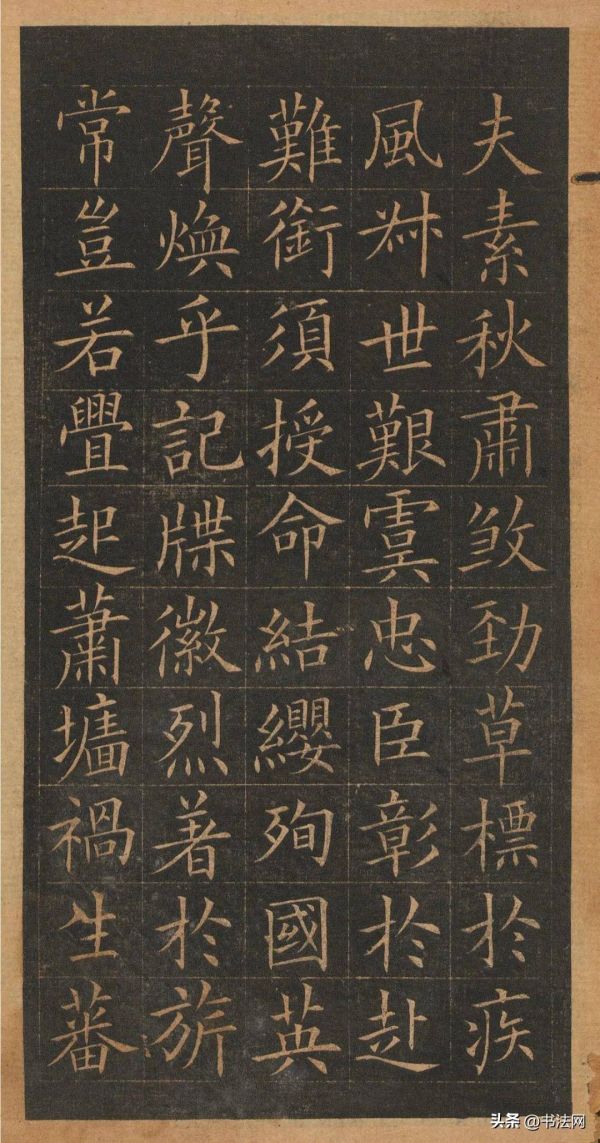 夫素秋肅煞勁草標於疾
風叔世艱虞忠臣彰於赴
難銜須授命結纓殉國英
聲煥乎記牒徽烈著於旂
常豈若舋起蕭墻禍生蕃
头条 @书法网